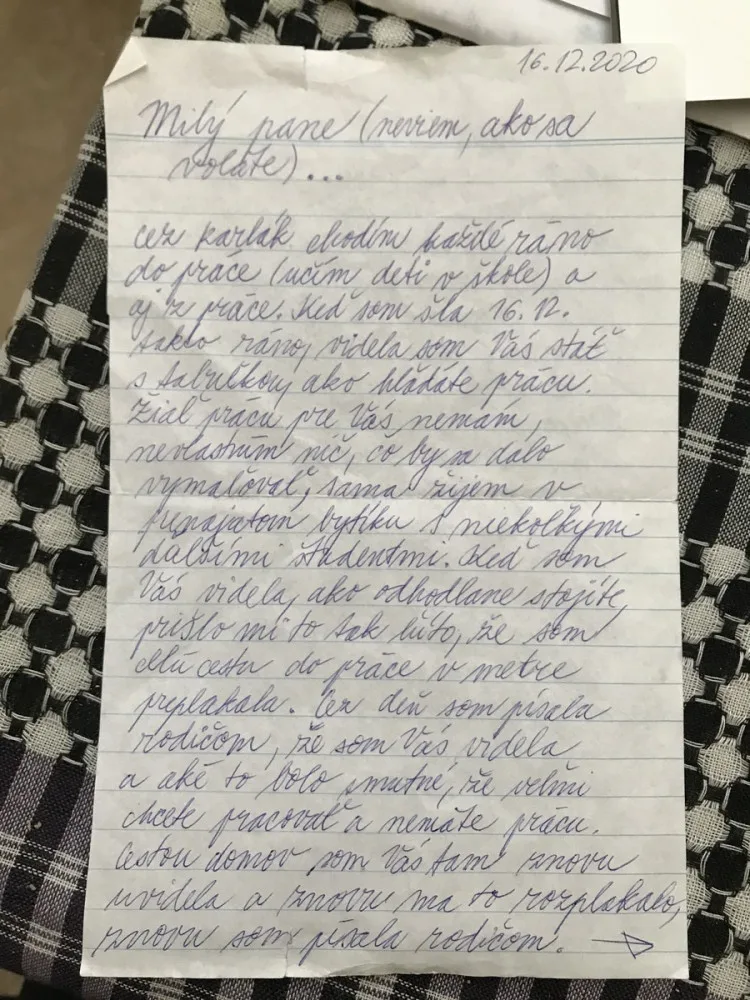 16.12.2020
Milý pane (neviem, ako sa
voláte)...
cez karlák chodím každé ráno
do práce (učím deti v škole) a
aj z práce. Keď som šla 16.12.
takto ráno, videla som Vás stáť
s tabuľkou, ako hľadáte prácu.
Žiaľ prácu pre Vás nemám,
nevlastním nič, čo by sa dalo
vymaľovať, sama žijem v
prenajatom bytíku s niekoľkými
ďalšími študentmi. Keď som
Vás videla, ako odhodlane stojíte,
prišlo mi to tak ľúto, že som
celú cestu do práce v metre
preplakala. Cez deň som písala
rodičom, že som Vás videla
a aké to bolo smutné, že veľmi
chcete pracovať a nemáte prácu.
Cestou domov som Vás tam znovu
uvidela a znovu ma to rozplakalo,
znovu som písala rodičom. →